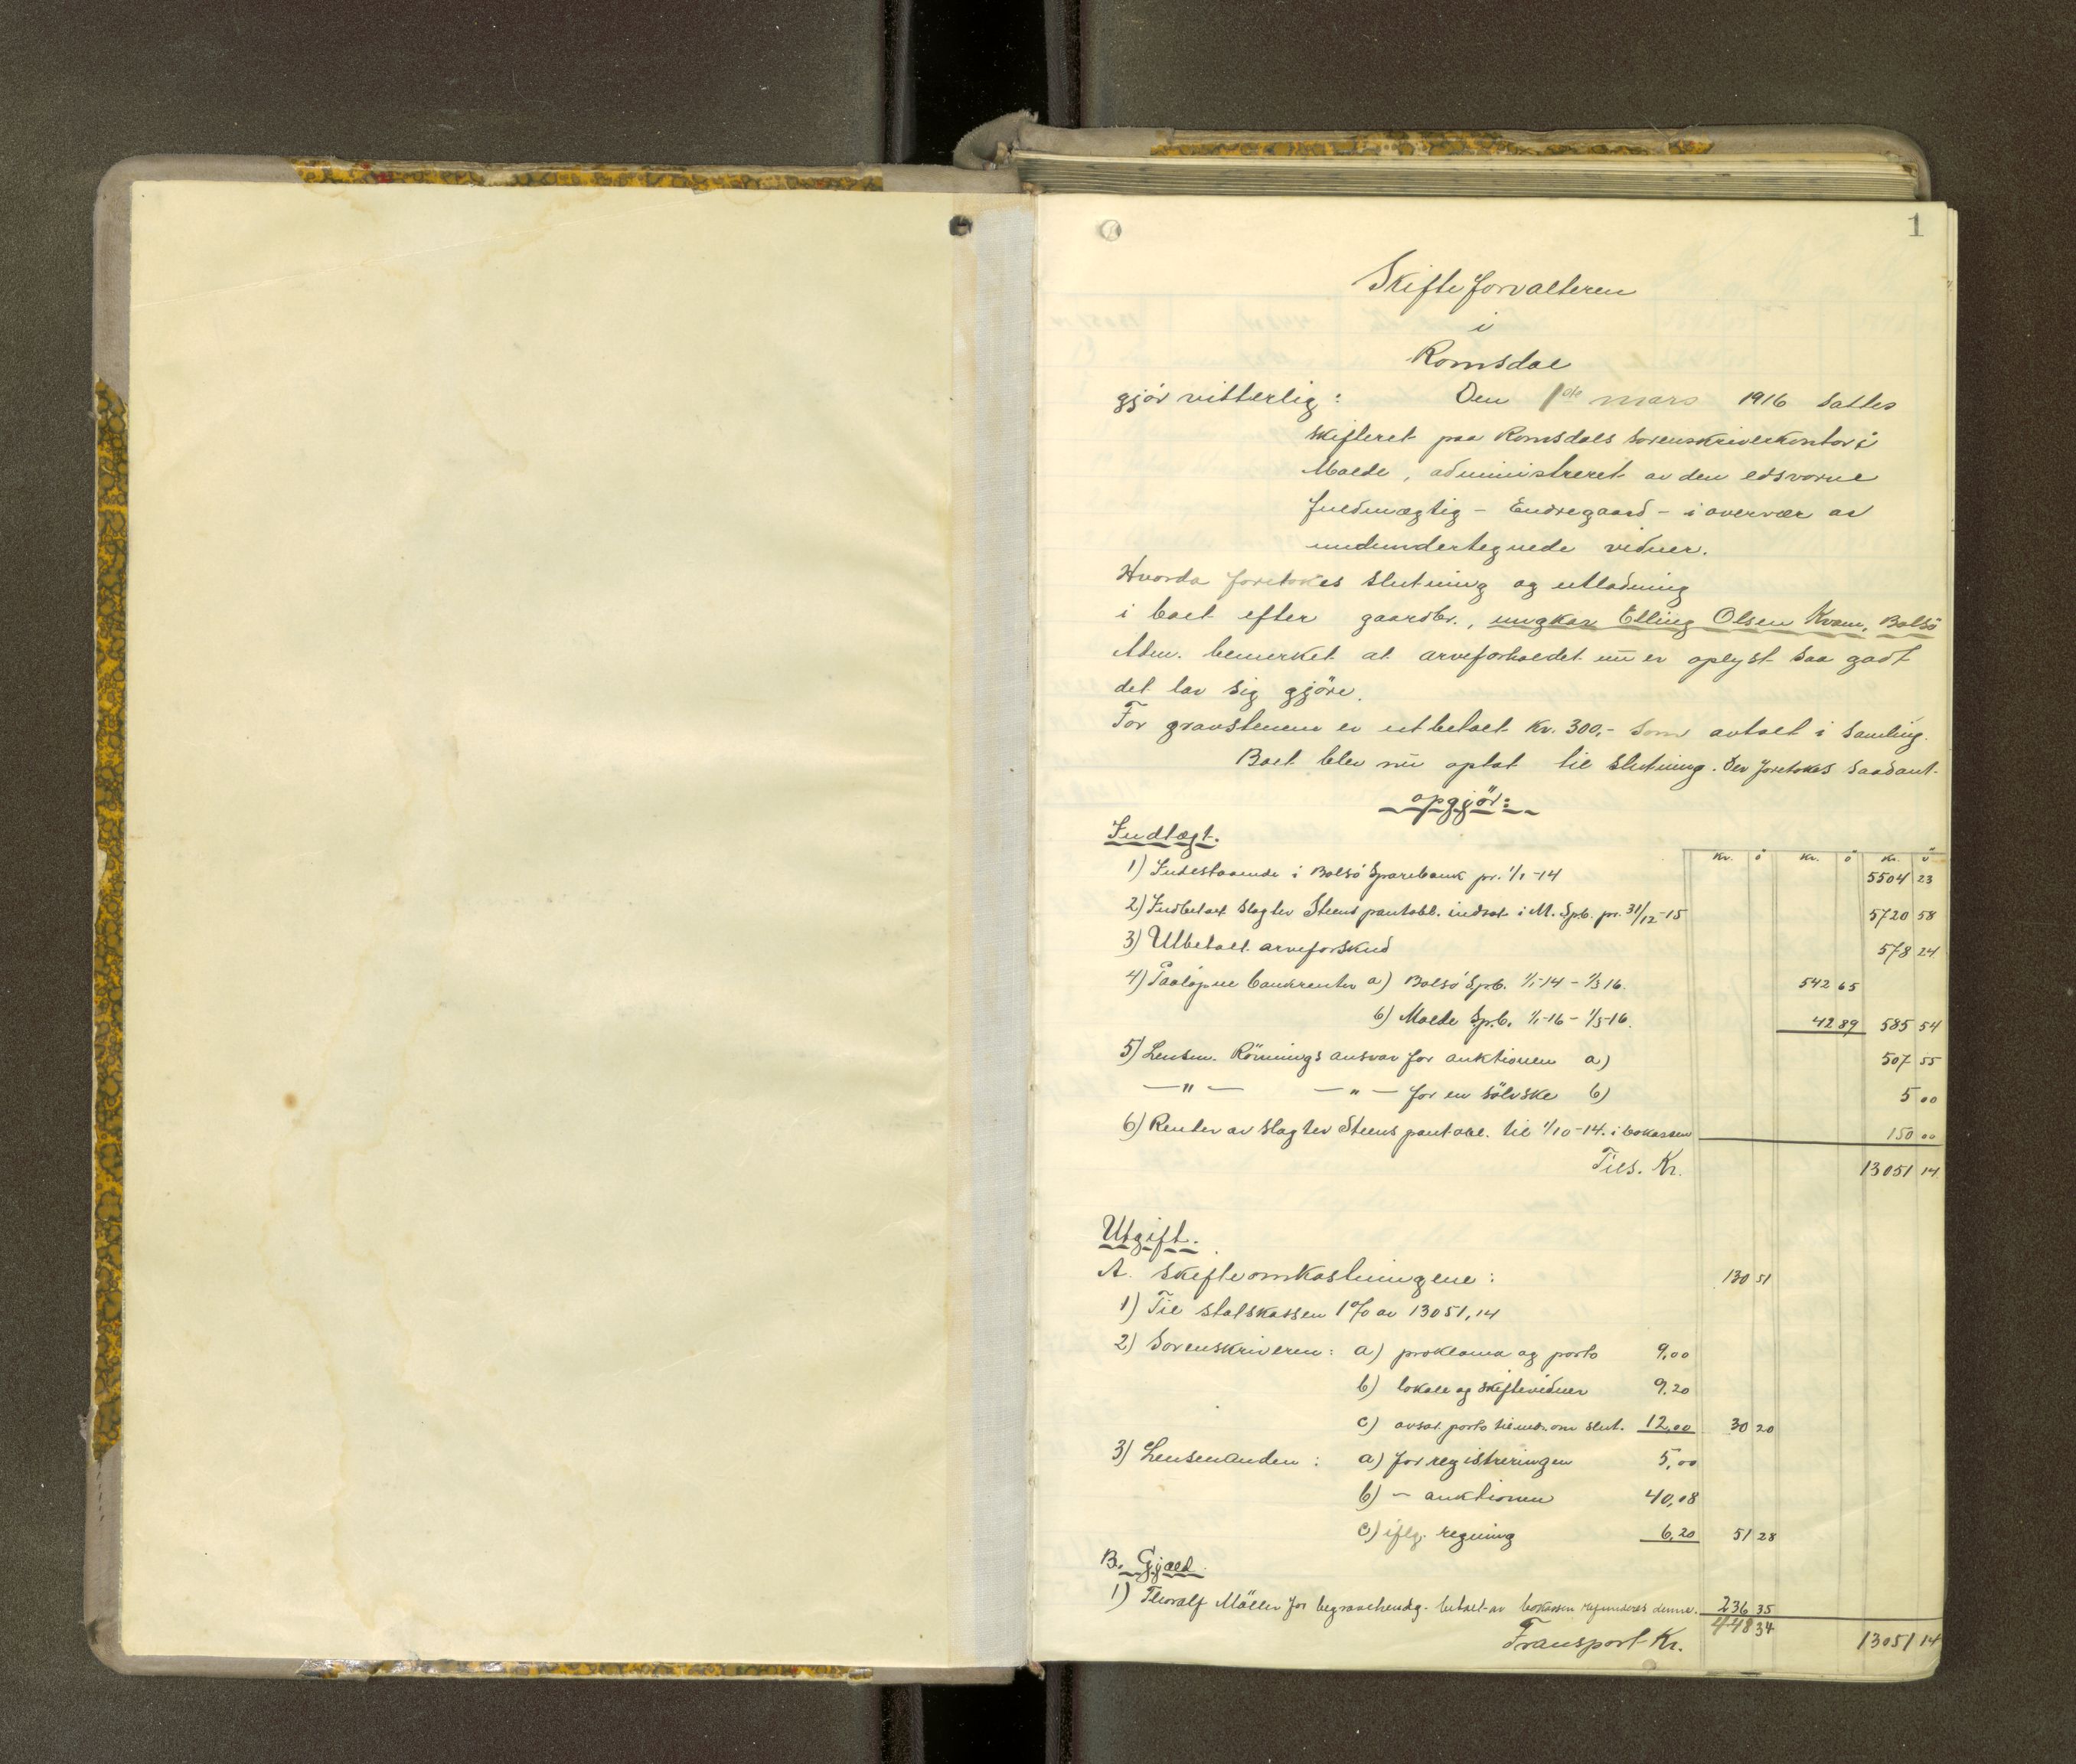 1
Skifteforvalteren
i
Romsdal
gjör vitterlig: Den 1ste mars 1916 sattes
skifteret paa Romsdals sorenskriverkontor i
Molde, administreret av den edsvorne
fuldmægtig - Endregaard - i overvær av
undertegnede vidner.
Hvorda foretokes slutning og utlodning
i boet efter gaardbr., ungkar Elling Olsen Kvam, Bolsö
Adm. bemerket at arveforholdet nu er oplyst saa godt
det lar sig gjöre.
For gravstenene er utbetalt kr. 300,- som avtalt i samling.
Boet blev nu optat til slutning. Der foretokes saadant
opgjör:
Indtægt.
Kr. ö Kr. ö Kr. ö
1) Indestaaende i Bolsö Sparebank pr. 1/1-14 5504 23
2) Indbetalt slagter Steens pantobl. indsat i M. Spb. pr. 31/12-15 5720 58
3) Utbetalt arveforskud 578 24
4) Paalöpne bankrenter a) Bolsö Spb. 1/1-14 - 1/3 16. 542 65
b) Molde Spb. 1/1-16 - 1/3-16. 42 89 585 54
5) Lensm. Rönnings ansvar for auktionen a) 507 55
—"— —"— for en sölvske b) 5 00
6) Renter av slagter Steens pantobl. til 1/10-14. i bokassen 150 00
Tils. Kr. 13051 14
Utgift.
A. Skifteomkostningene: 130 51
1) Til statskassen 1% av 13051,14
2) Sorenskriveren: a) proklama og porto 9,00
b) lokale og skiftevidner 9.20
c) avsat porto til medd. om slut. 12,00 30 20
3) Lensmanden: a) for registreringen 5,00
b) - auktionen 40,08
c) iflg. regning 6,20 51 28
B. Gjæld.
1) Thoralf Möller for begravelsesdg. betalt av bokassen refunderes denne. 236 35
Transport Kr. 448 34 13051 14